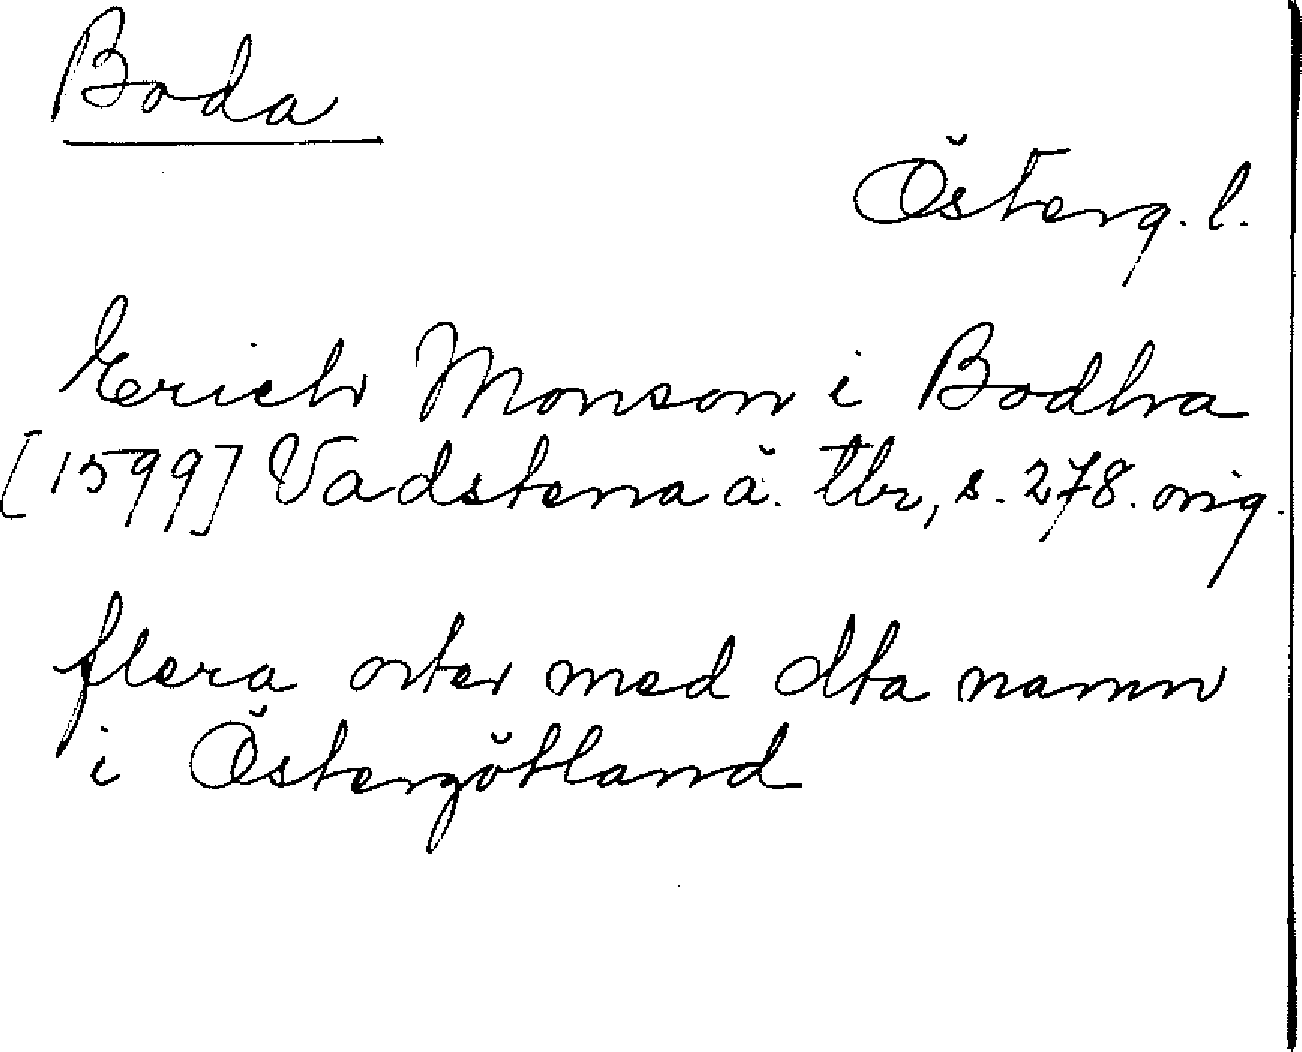 Boda
Österg. l.
Erich Monson i Bodha
[1599] Vadstena ä. tbr, s. 278. orig.
flera orter med dta namn
i Östergötland